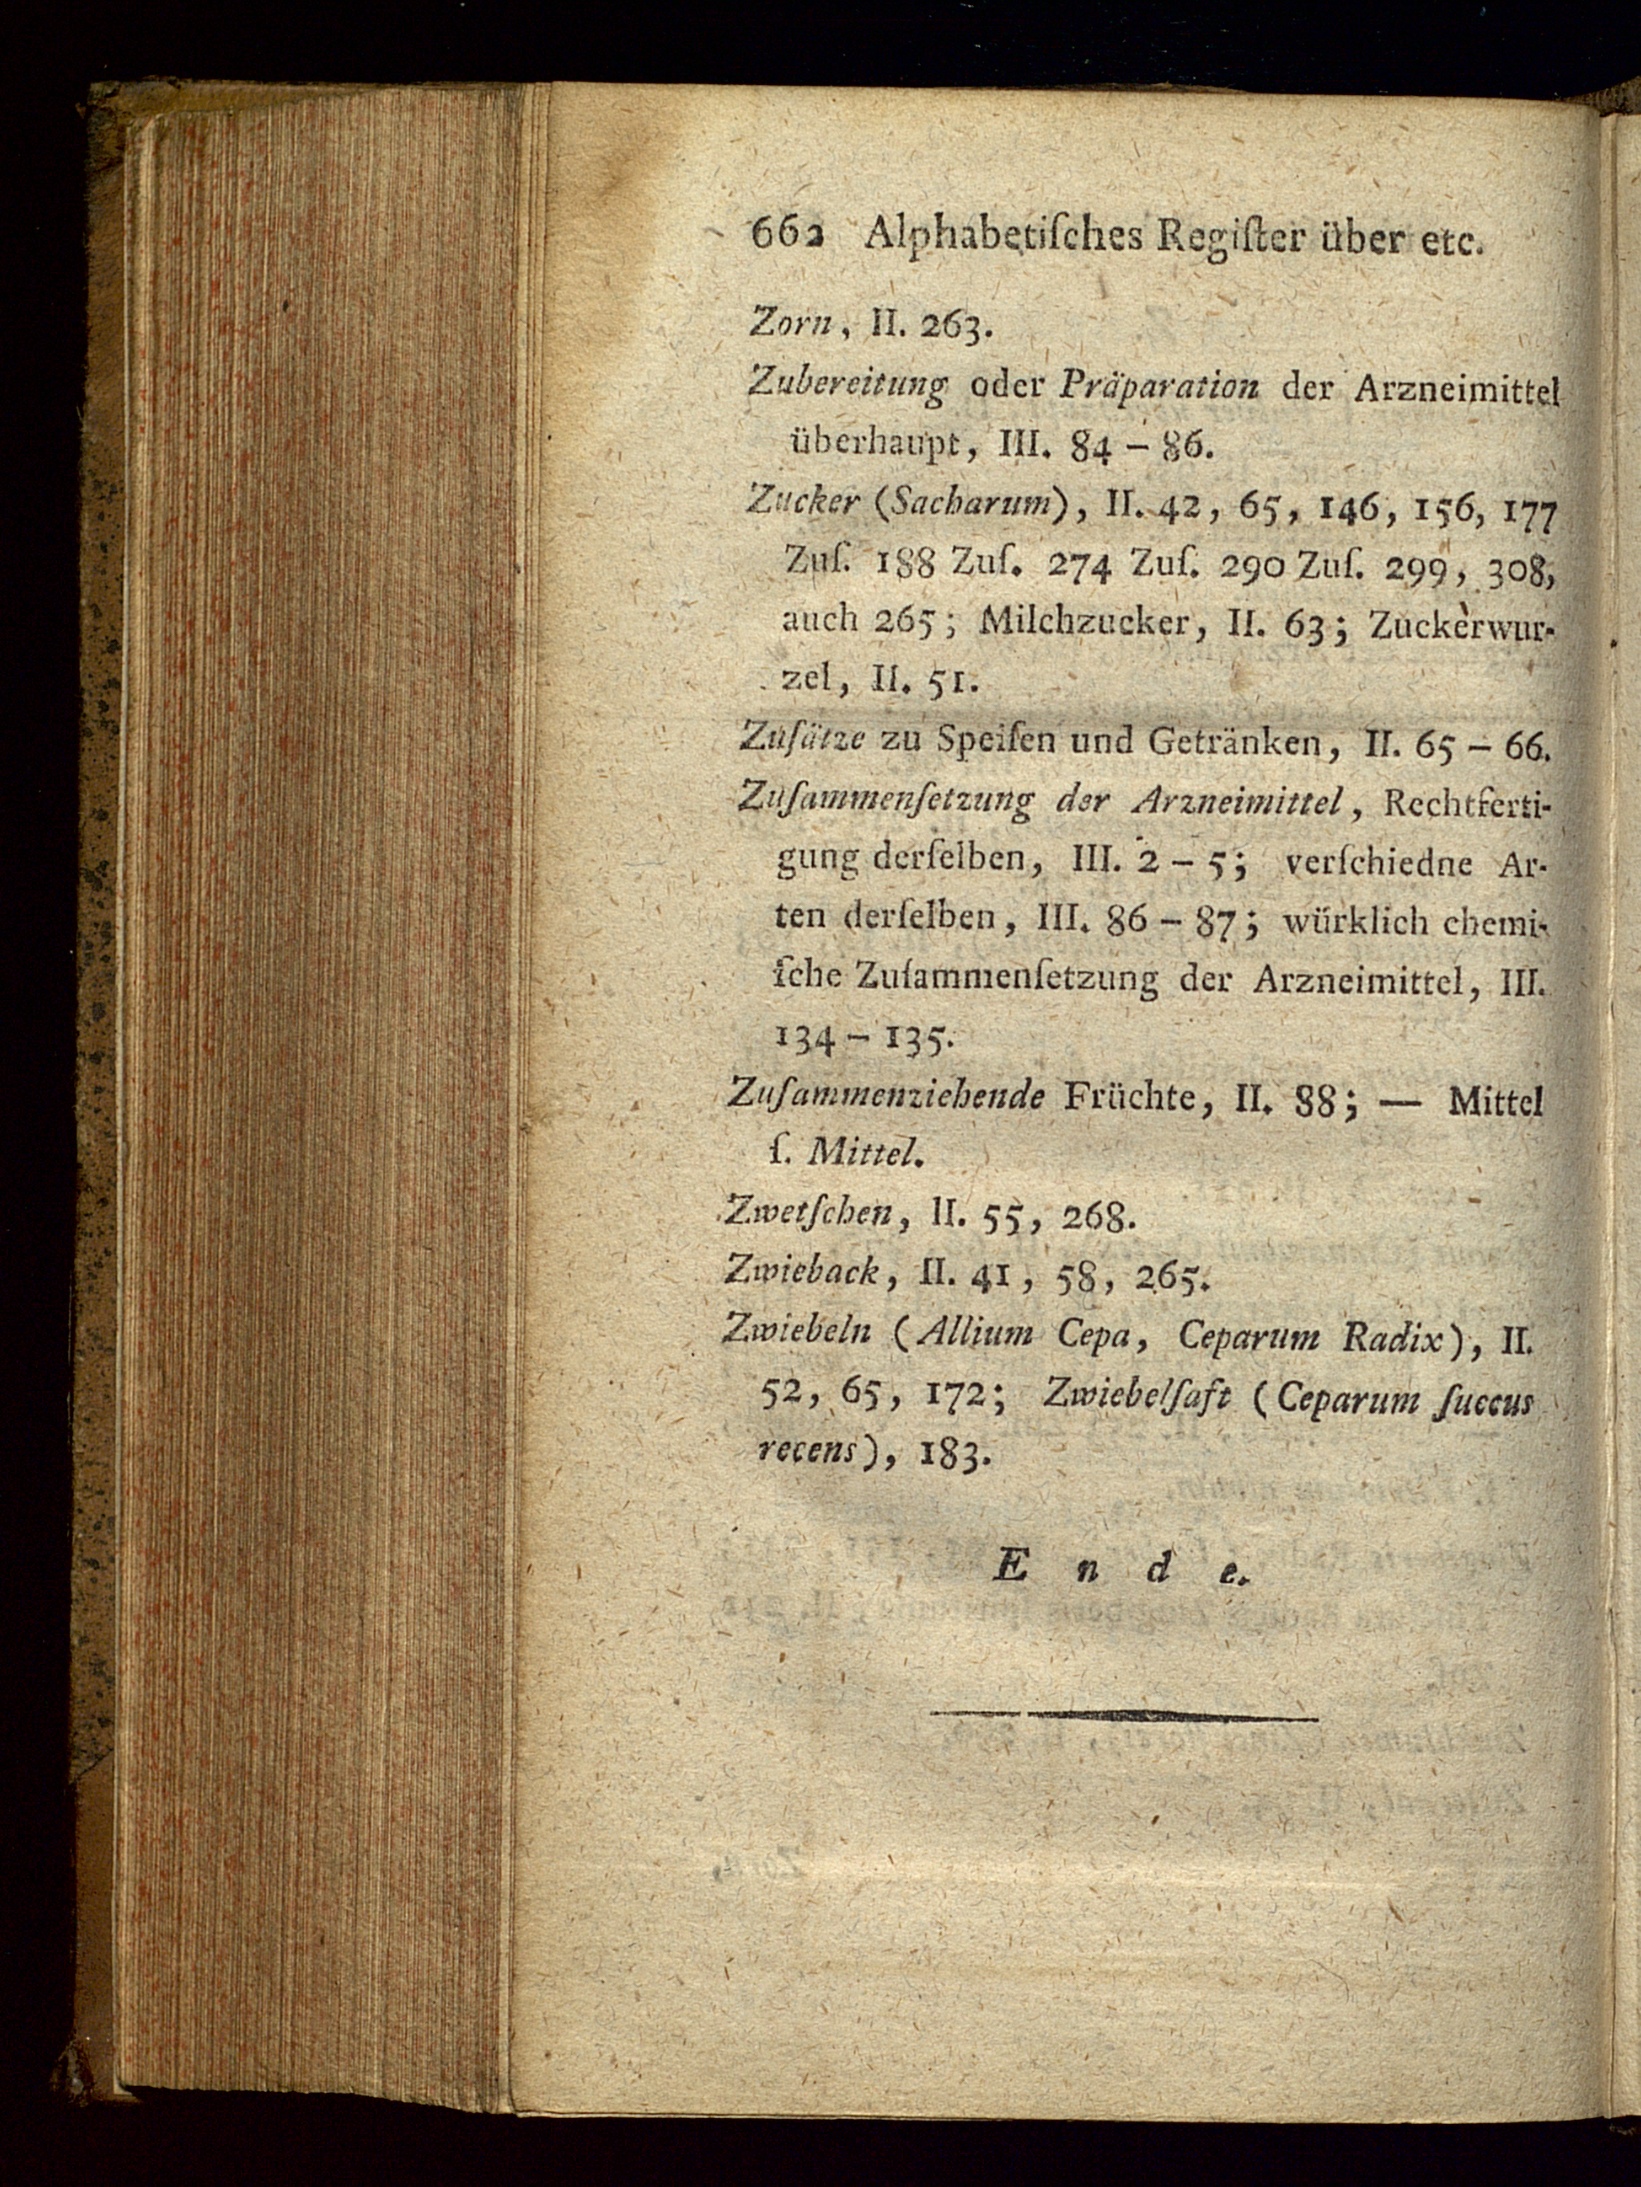 662 Alphabetiſches Regiſter über etc.
Zorn, II. 263.
Zubereitung oder Präparation der Arzneimittel
überhaupt, III. 84 – 86.
Zucker (Sacharum), II. 42, 65, 146, 156, 177
Zuſ. 188 Zuſ. 274 Zuſ. 290 Zuſ. 299, 308,
auch 265; Milchzucker, II. 63; Zuckerwur-
zel, II. 51.
Zuſätze zu Speiſen und Getränken, II. 65 – 66.
Zuſammenſetzung der Arzneimittel, Rechtferti-
gung derſelben, III. 2 – 5; verſchiedne Ar-
ten derſelben, III. 86 – 87; würklich chemi-
ſche Zuſammenſetzung der Arzneimittel, III.
134 – 135.
Zuſammenziehende Früchte, II. 88; — Mittel
ſ. Mittel.
Zwetſchen, II. 55, 268.
Zwieback, II. 41, 58, 265.
Zwiebeln (Allium Cepa, Ceparum Radix), II.
52, 65, 172; Zwiebelſaft (Ceparum ſuccus
recens), 183.
Ende.